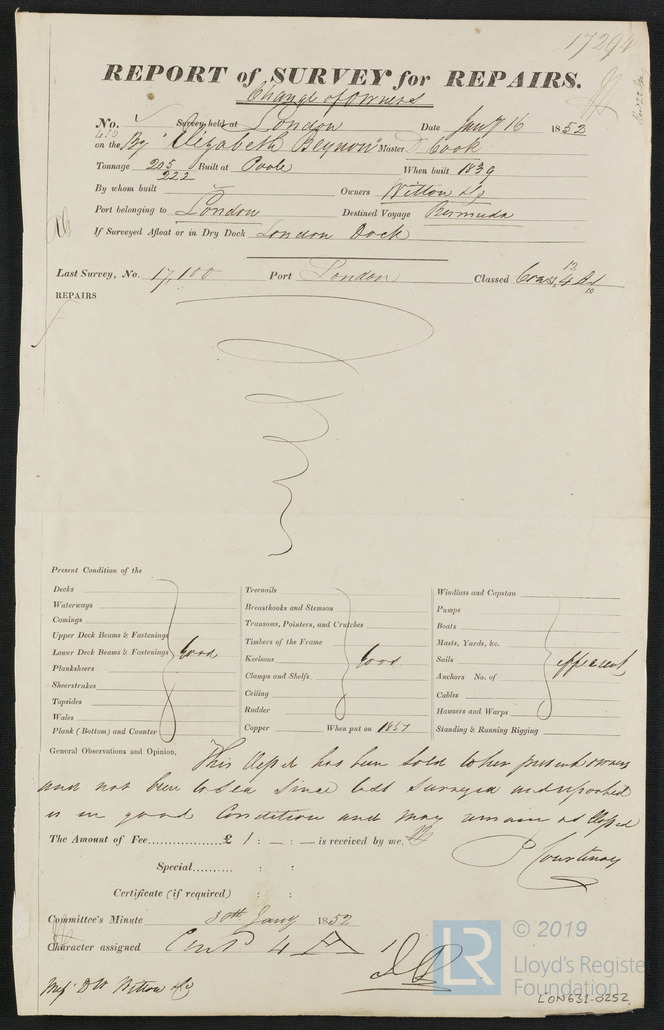 17294
REPORT of SURVEY for REPAIRS.
Change of Owners
No. 410 Survey held at London Date Jany 16 1852
on the Bg "Elizabeth Beynon" Master Cook
Tonnage 205 Built at Poole When built 1839
222
By whom built Owners Witton & Co
Port belonging to London Destined Voyage Bermuda
If Surveyed Afloat or in Dry Dock London Dock
Last Survey, No. 17,100 Port London Classed 4 A1
REPAIRS
Present Condition of the
Decks
Waterways
Comings
Upper Deck Beams & Fastenings
Lower Deck Beams & Fastenings Good
Planksheers
Sheerstrakes
Topsides
Wales
Plank (Bottom) and Counter
Treenails
Breasthooks and Stemson
Transoms, Pointers, and Crutches
Timbers of the Frame
Keelsons Good
Clamps and Shelfs
Ceiling
Rudder
Copper When put on 1851
Windlass and Capstan
Pumps
Boats
Masts, Yards, &c.
Sails efficient
Anchors No. of
Cables
Hawsers and Warps
Standing & Running Rigging
General Observations and Opinion, This Vessel has been sold to her present owners
and not been to sea since last surveyed and reported
is in good Condition and may remain as Classed
The Amount of Fee.................. £ 1 : — : — is received by me,
P Courtenay
Special.......... : :
Certificate (if required) : :
Committee's Minute 30th Jany 1852
Character assigned 4 A 1
Witton & Co
LR © 2019
Lloyd's Register
Foundation
LON631-0252